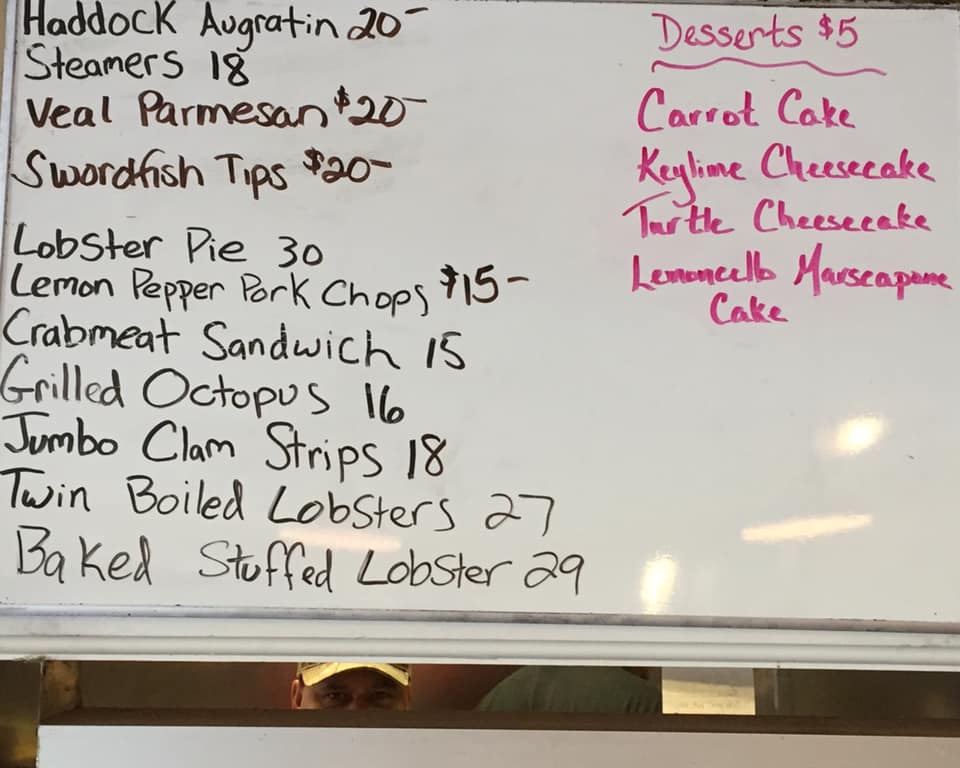 Haddock Augratin 20-
Steamers 18
Veal Parmesan $20-
Swordfish Tips $20-
Lobster Pie 30
Lemon Pepper Pork Chops $15-
Crabmeat Sandwich 15
Grilled Octopus 16
Jumbo Clam Strips 18
Twin Boiled Lobsters 27
Baked Stuffed Lobster 29
Desserts $5
Carrot Cake
Keylime Cheesecake
Turtle Cheesecake
Lemoncello Marscapone
Cake